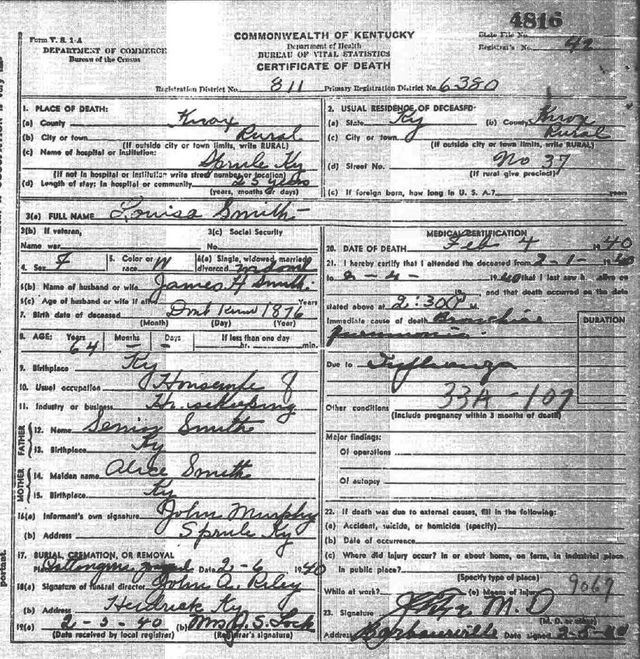 4816
Form V. S. 1-A
DEPARTMENT OF COMMERCE
Bureau of the Census
COMMONWEALTH OF KENTUCKY
Department of Health
BUREAU OF VITAL STATISTICS
CERTIFICATE OF DEATH
State File No.
Registrar's No. 42
Registration District No. 811
Primary Registration District No. 6380
1. PLACE OF DEATH:
(a) County Knox
(b) City or town Rural
(If outside city or town limits, write RURAL)
(c) Name of hospital or institution:
Sprule Ky
(If not in hospital or institution write street number or location)
(d) Length of stay: In hospital or community 25 yrs
(years, months or days)
2. USUAL RESIDENCE OF DECEASED:
(a) State Ky (b) County Knox
(c) City or town Rural
(If outside city or town limits, write RURAL)
(d) Street No. No 37
(If rural give precinct)
(e) If foreign born, how long in U. S. A.? years
3(a) FULL NAME Louisa Smith
3(b) If veteran,
Name war
3(c) Social Security
No.
4. Sex F
5. Color or race W
6(a) Single, widowed, married, divorced Widowed
6(b) Name of husband or wife James H Smith
6(c) Age of husband or wife if alive Years
7. Birth date of deceased Dont Know 1876
(Month) (Day) (Year)
8. AGE: Years Months Days If less than one day
64 - - hr. min.
9. Birthplace Ky
10. Usual occupation Housewife
11. Industry or business Housekeeping
FATHER
12. Name Senior Smith
13. Birthplace Ky
MOTHER
14. Maiden name Alice Smith
15. Birthplace Ky
16(a) Informant's own signature John Murphy
(b) Address Sprule Ky
17. BURIAL, CREMATION, OR REMOVAL
Place Date 2-6 1940
18(a) Signature of funeral director John A. Riley
(b) Address Heidrick Ky
19(a) 2-5-40 (b) Mrs. S. Lock
(Date received by local registrar) (Registrar's signature)
MEDICAL CERTIFICATION
20. DATE OF DEATH Feb 4 1940
21. I hereby certify that I attended the deceased from 2-1-1940
to 2-4-1940 that I last saw h alive on
and that death occurred on the date
stated above at 2:30 P.
Immediate cause of death Bronchial
pneumonia
DURATION
Due to Influenza
33A-107
Other conditions
(Include pregnancy within 3 months of death)
Major findings:
Of operations
Of autopsy
22. If death was due to external causes, fill in the following:
(a) Accident, suicide, or homicide (specify)
(b) Date of occurrence
(c) Where did injury occur? In or about home, on farm, in industrial place
In public place?
(Specify type of place)
While at work? (e) Means of injury
9069
23. Signature M.D
(M. D. or other)
Address Barbourville Date signed 2-5-40
portant.